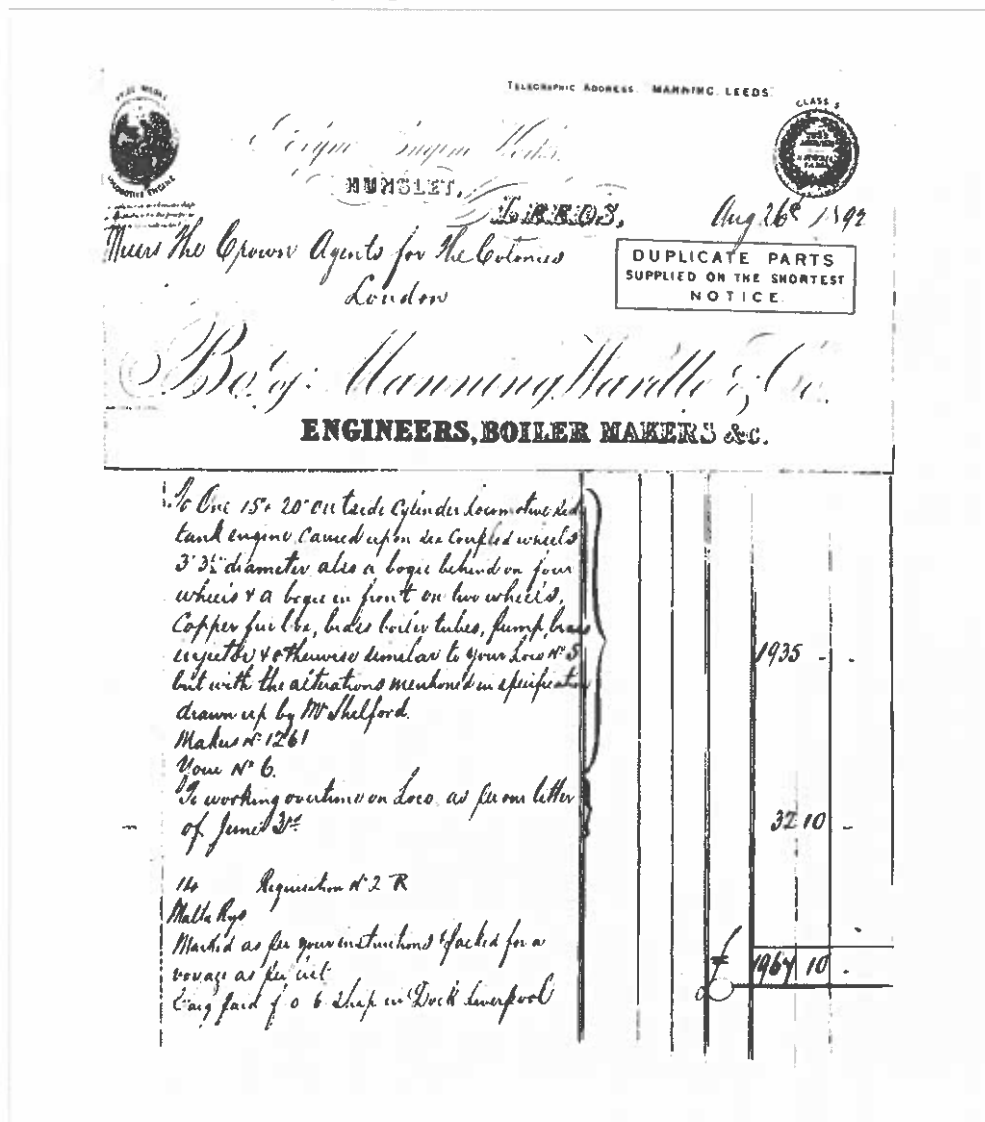 TELEGRAPHIC ADDRESS. MANNING. LEEDS.
CLASS 5
LOCOMOTIVE ENGINE
Engine Works
HUNSLET,
LEEDS,
Aug 26th 1892
Messrs The Crown Agents for the Colonies
London
DUPLICATE PARTS
SUPPLIED ON THE SHORTEST
NOTICE.
Bo't of: Manning Wardle & Co.
ENGINEERS, BOILER MAKERS &c.
To One 15 x 20" outside Cylinder Locomotive side
tank engine Carried upon six Coupled wheels
3' 3½" diameter also a bogie behind on four
wheels & a bogie in front on two wheels,
Copper fire box, brass boiler tubes, pump, brass
injector & otherwise similar to your Loco No 5
but with the alterations mentioned in specification
drawn up by Mr Shelford.
1935 - -
Makers No 1261
Your No 6.
To working overtime on Loco as per our letter
of June 3rd
32 10 -
14 Requisition No 2 R
Malta Rys
Marked as per your instructions & packed for a
voyage as per
£ 1967 10 -
Carg paid f o b Ship in Dock Liverpool